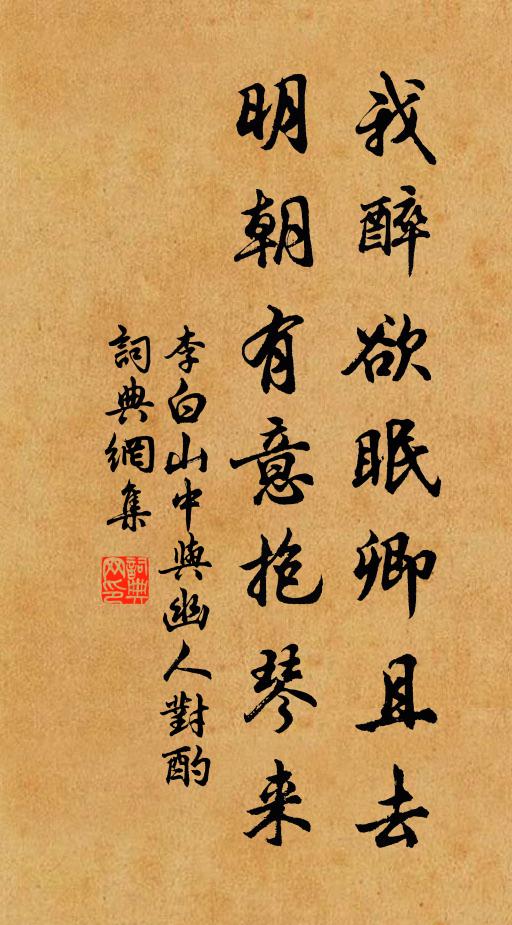 我醉欲眠卿且去
明朝有意抱琴来
李白山中與幽人對酌
詞典網集
詞典网印